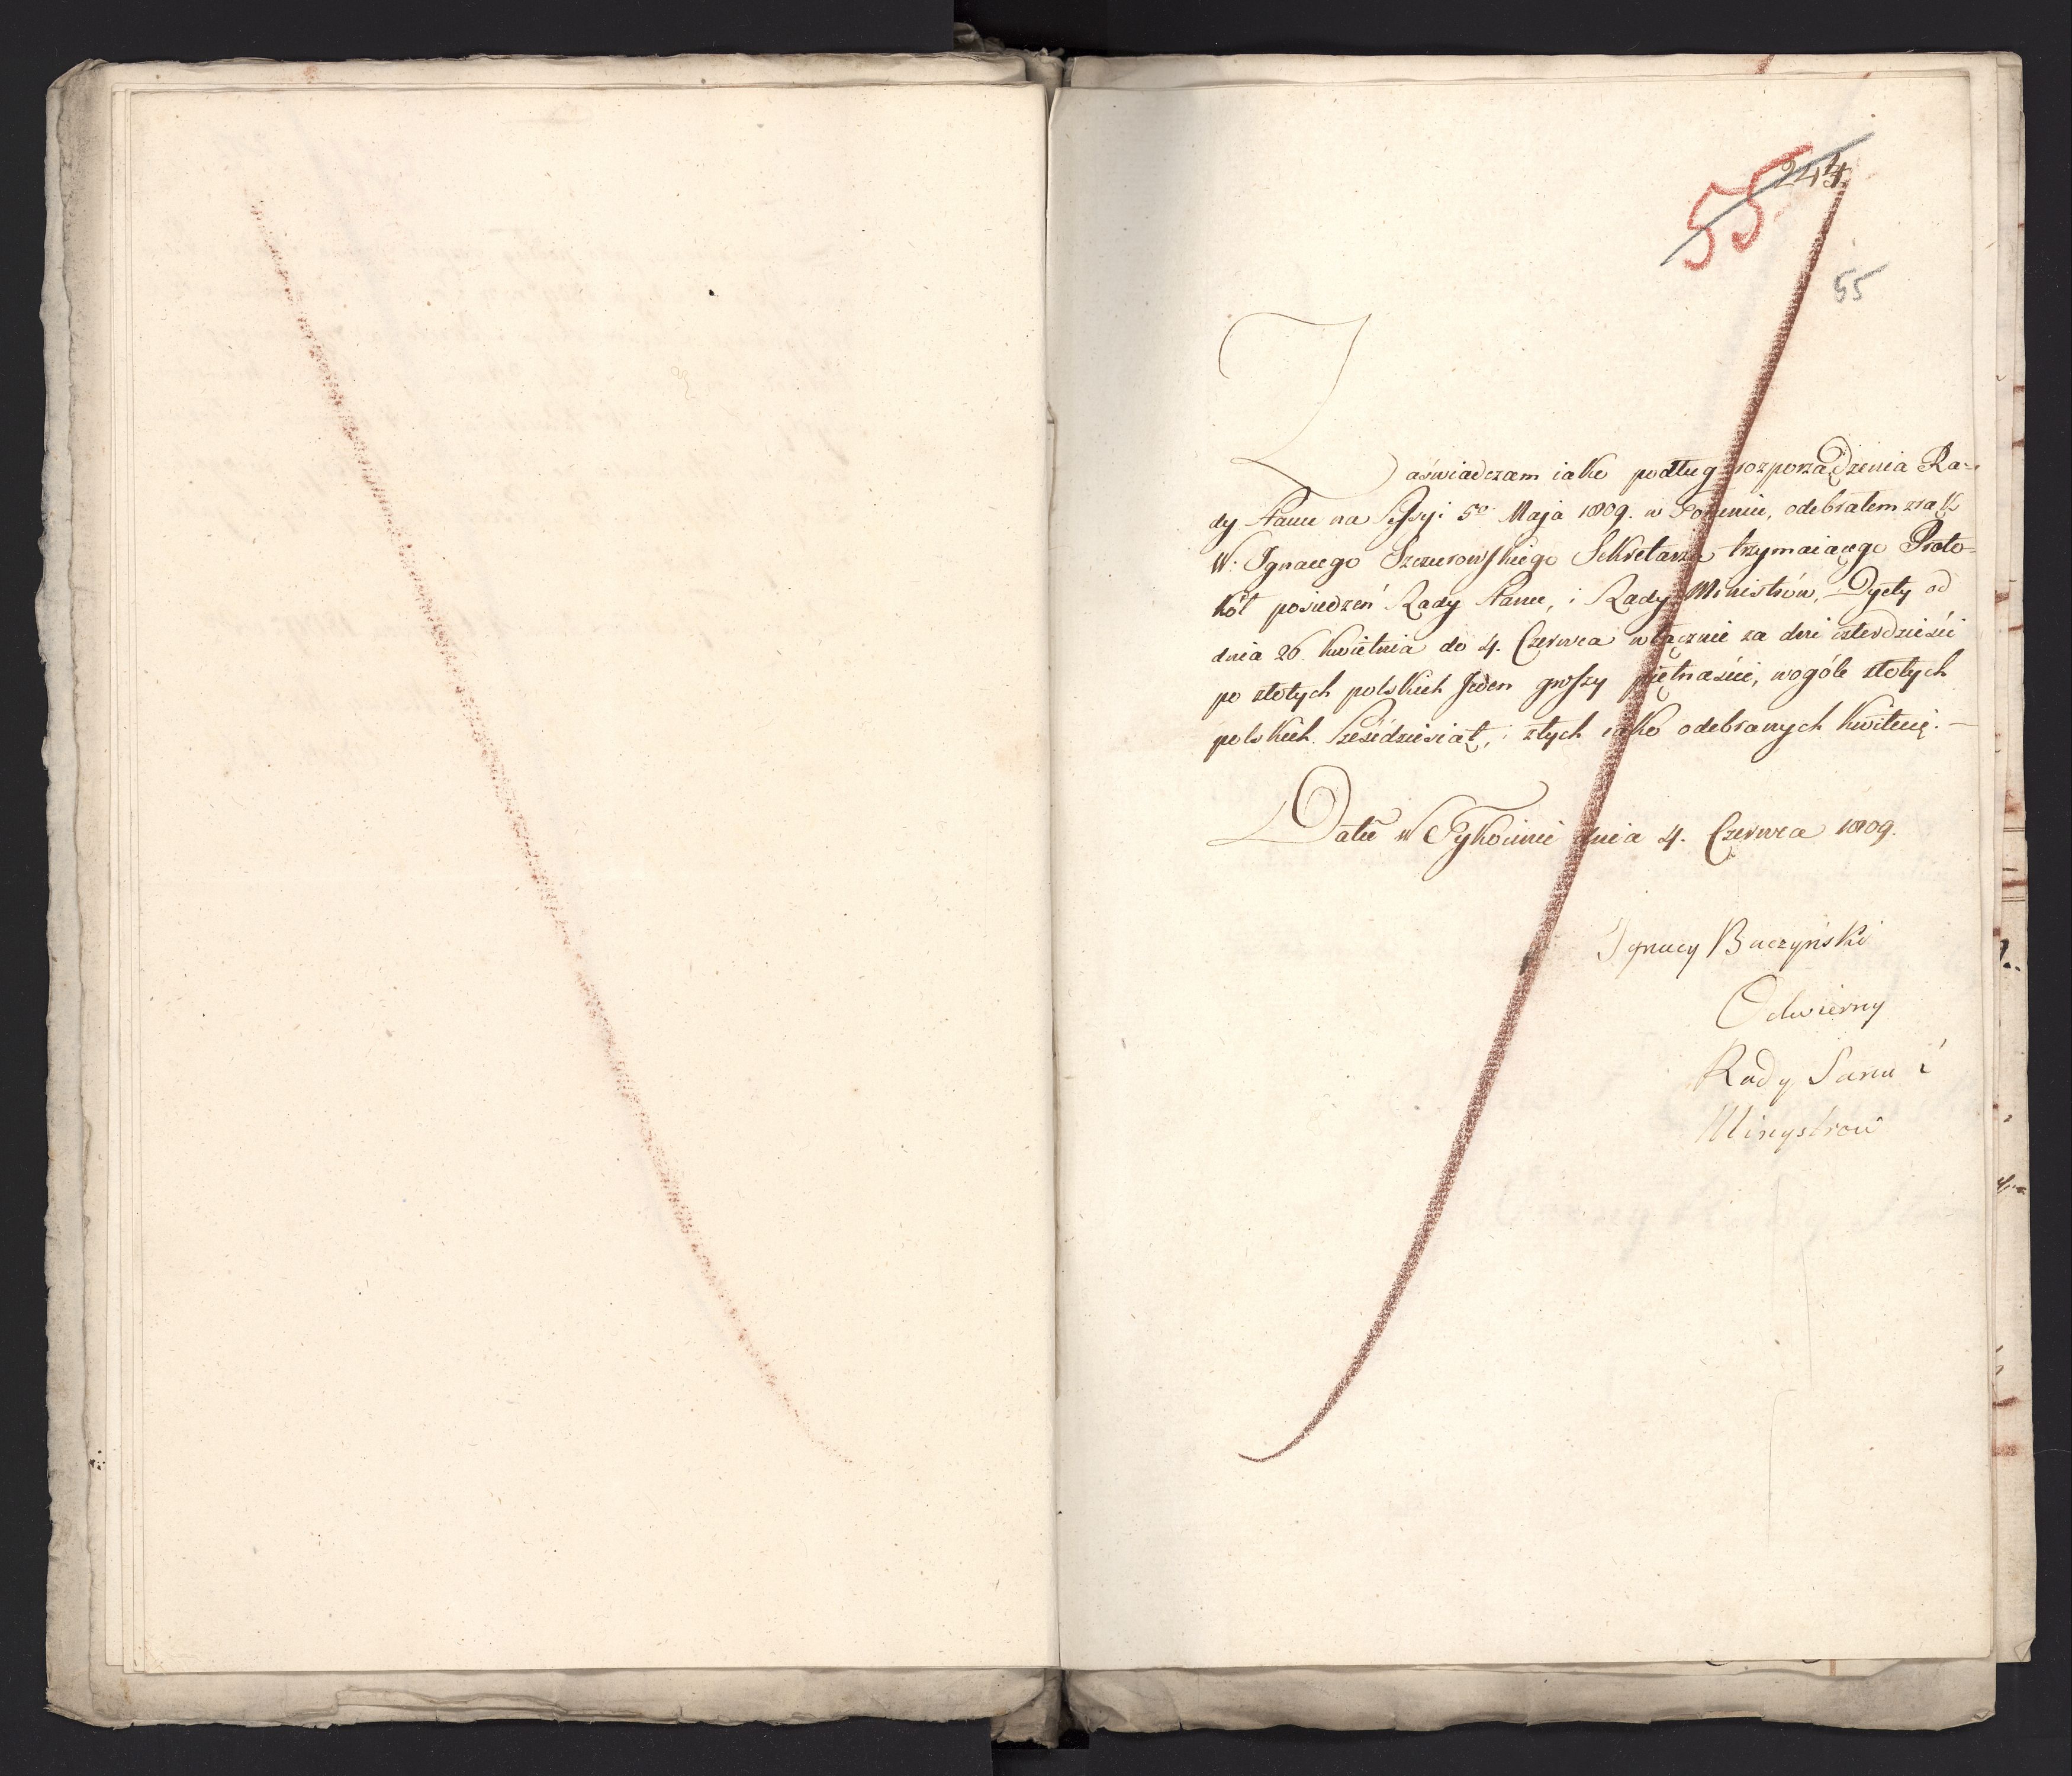 244.
55
55
Zaświadczam iako podług rozporządzenia Ra-
dy Stanu na Sessyi 5º Maja 1809. w                odebrałem z rąk
W: Ignacego Szczurowskiego Sekretarza trzymaiącego Proto-
kół posiedzeń Rady Stanu, i Rady Ministrów, Dyety od
dnia 26. Kwietnia do 4. Czerwca włącznie za dni czterdzieści
po złotych polskich Jeden groszy piętnaście, wogóle złotych
polskich Sześćdziesiąt, i złtych iako odebranych kwituię. —
Datū w Tykocinie dnia 4. Czerwca 1809.
Ignacy Buczyński
Odwierny
Rady Stanu i
Minystrow